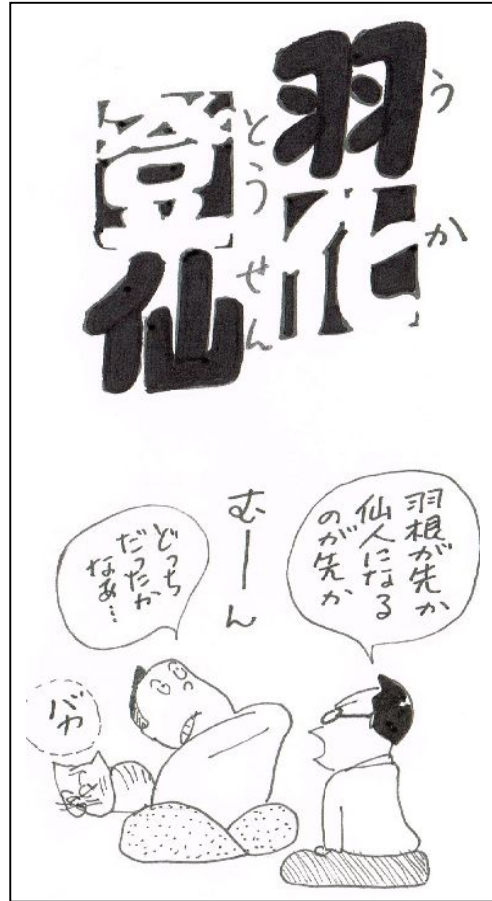 羽化
うか
登仙
とうせん
羽根が先か
仙人になる
のが先か
むーん
どっち
だったか
なあ…
バカ